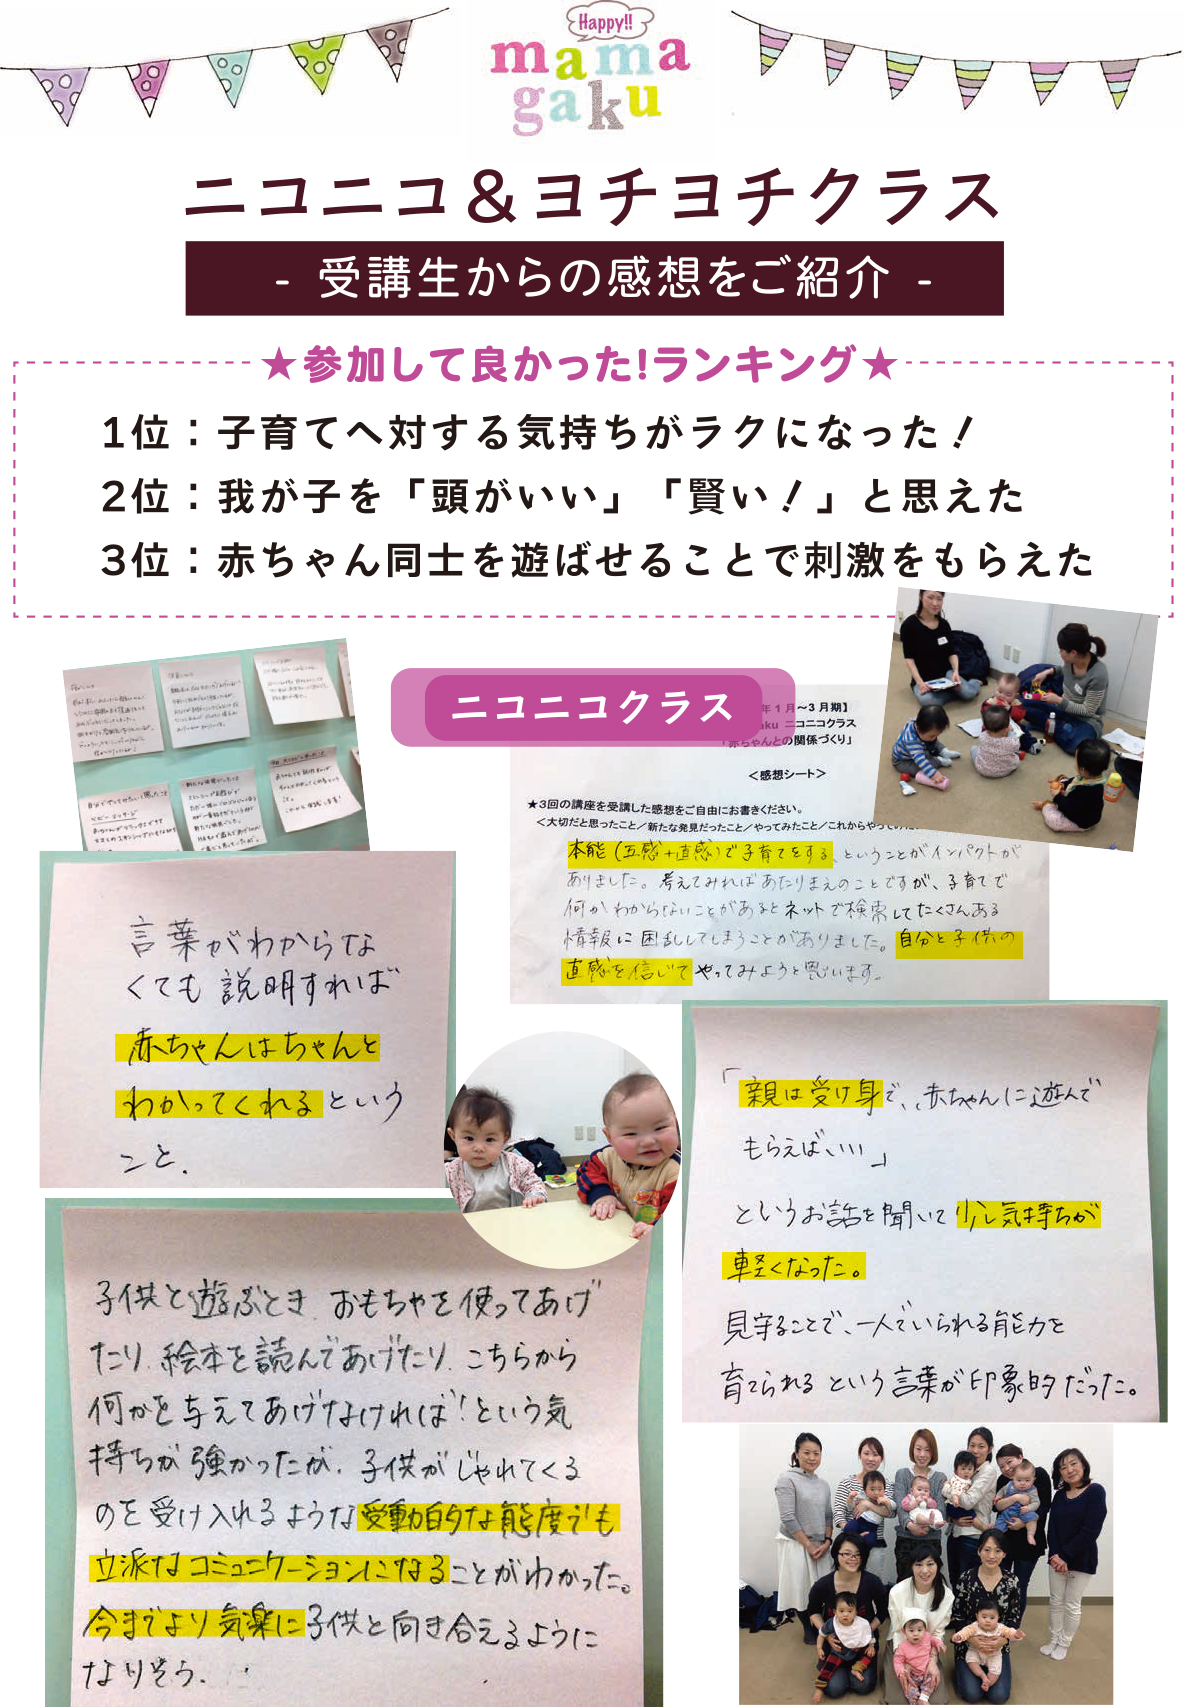 Happy!!
mama
gaku
ニコニコ＆ヨチヨチクラス
- 受講生からの感想をご紹介 -
★参加して良かった!ランキング★
1位：子育てへ対する気持ちがラクになった！
2位：我が子を「頭がいい」「賢い！」と思えた
3位：赤ちゃん同士を遊ばせることで刺激をもらえた
ニコニコクラス
年1月〜3月期】
aku ニコニコクラス
「赤ちゃんとの関係づくり」
＜感想シート＞
★3回の講座を受講した感想をご自由にお書きください。
＜大切だと思ったこと／新たな発見だったこと／やってみたこと／これからやって
本能（五感＋直感）で子育てをする、ということがインパクトが
ありました。考えてみればあたりまえのことですが、子育てで
何かわからないことがあるとネットで検索してたくさんある
情報に困乱してしまうことがありました。自分と子供の
直感を信じてやってみようと思います。
言葉がわからな
くても説明すれば
赤ちゃんはちゃんと
わかってくれるという
こと.
「親は受け身で、赤ちゃんに遊んで
もらえばいい」
というお話を聞いて少し気持ちが
軽くなった。
見守ることで、一人でいられる能力を
育てられるという言葉が印象的だった。
子供と遊ぶとき、おもちゃを使ってあげ
たり、絵本を読んであげたり、こちらから
何かを与えてあげなければ！という気
持ちが強かったが、子供がじゃれてくる
のを受け入れるような受動的な態度でも
立派なコミュニケーションになることがわかった。
今までより気楽に子供と向き合えるように
なりそう.